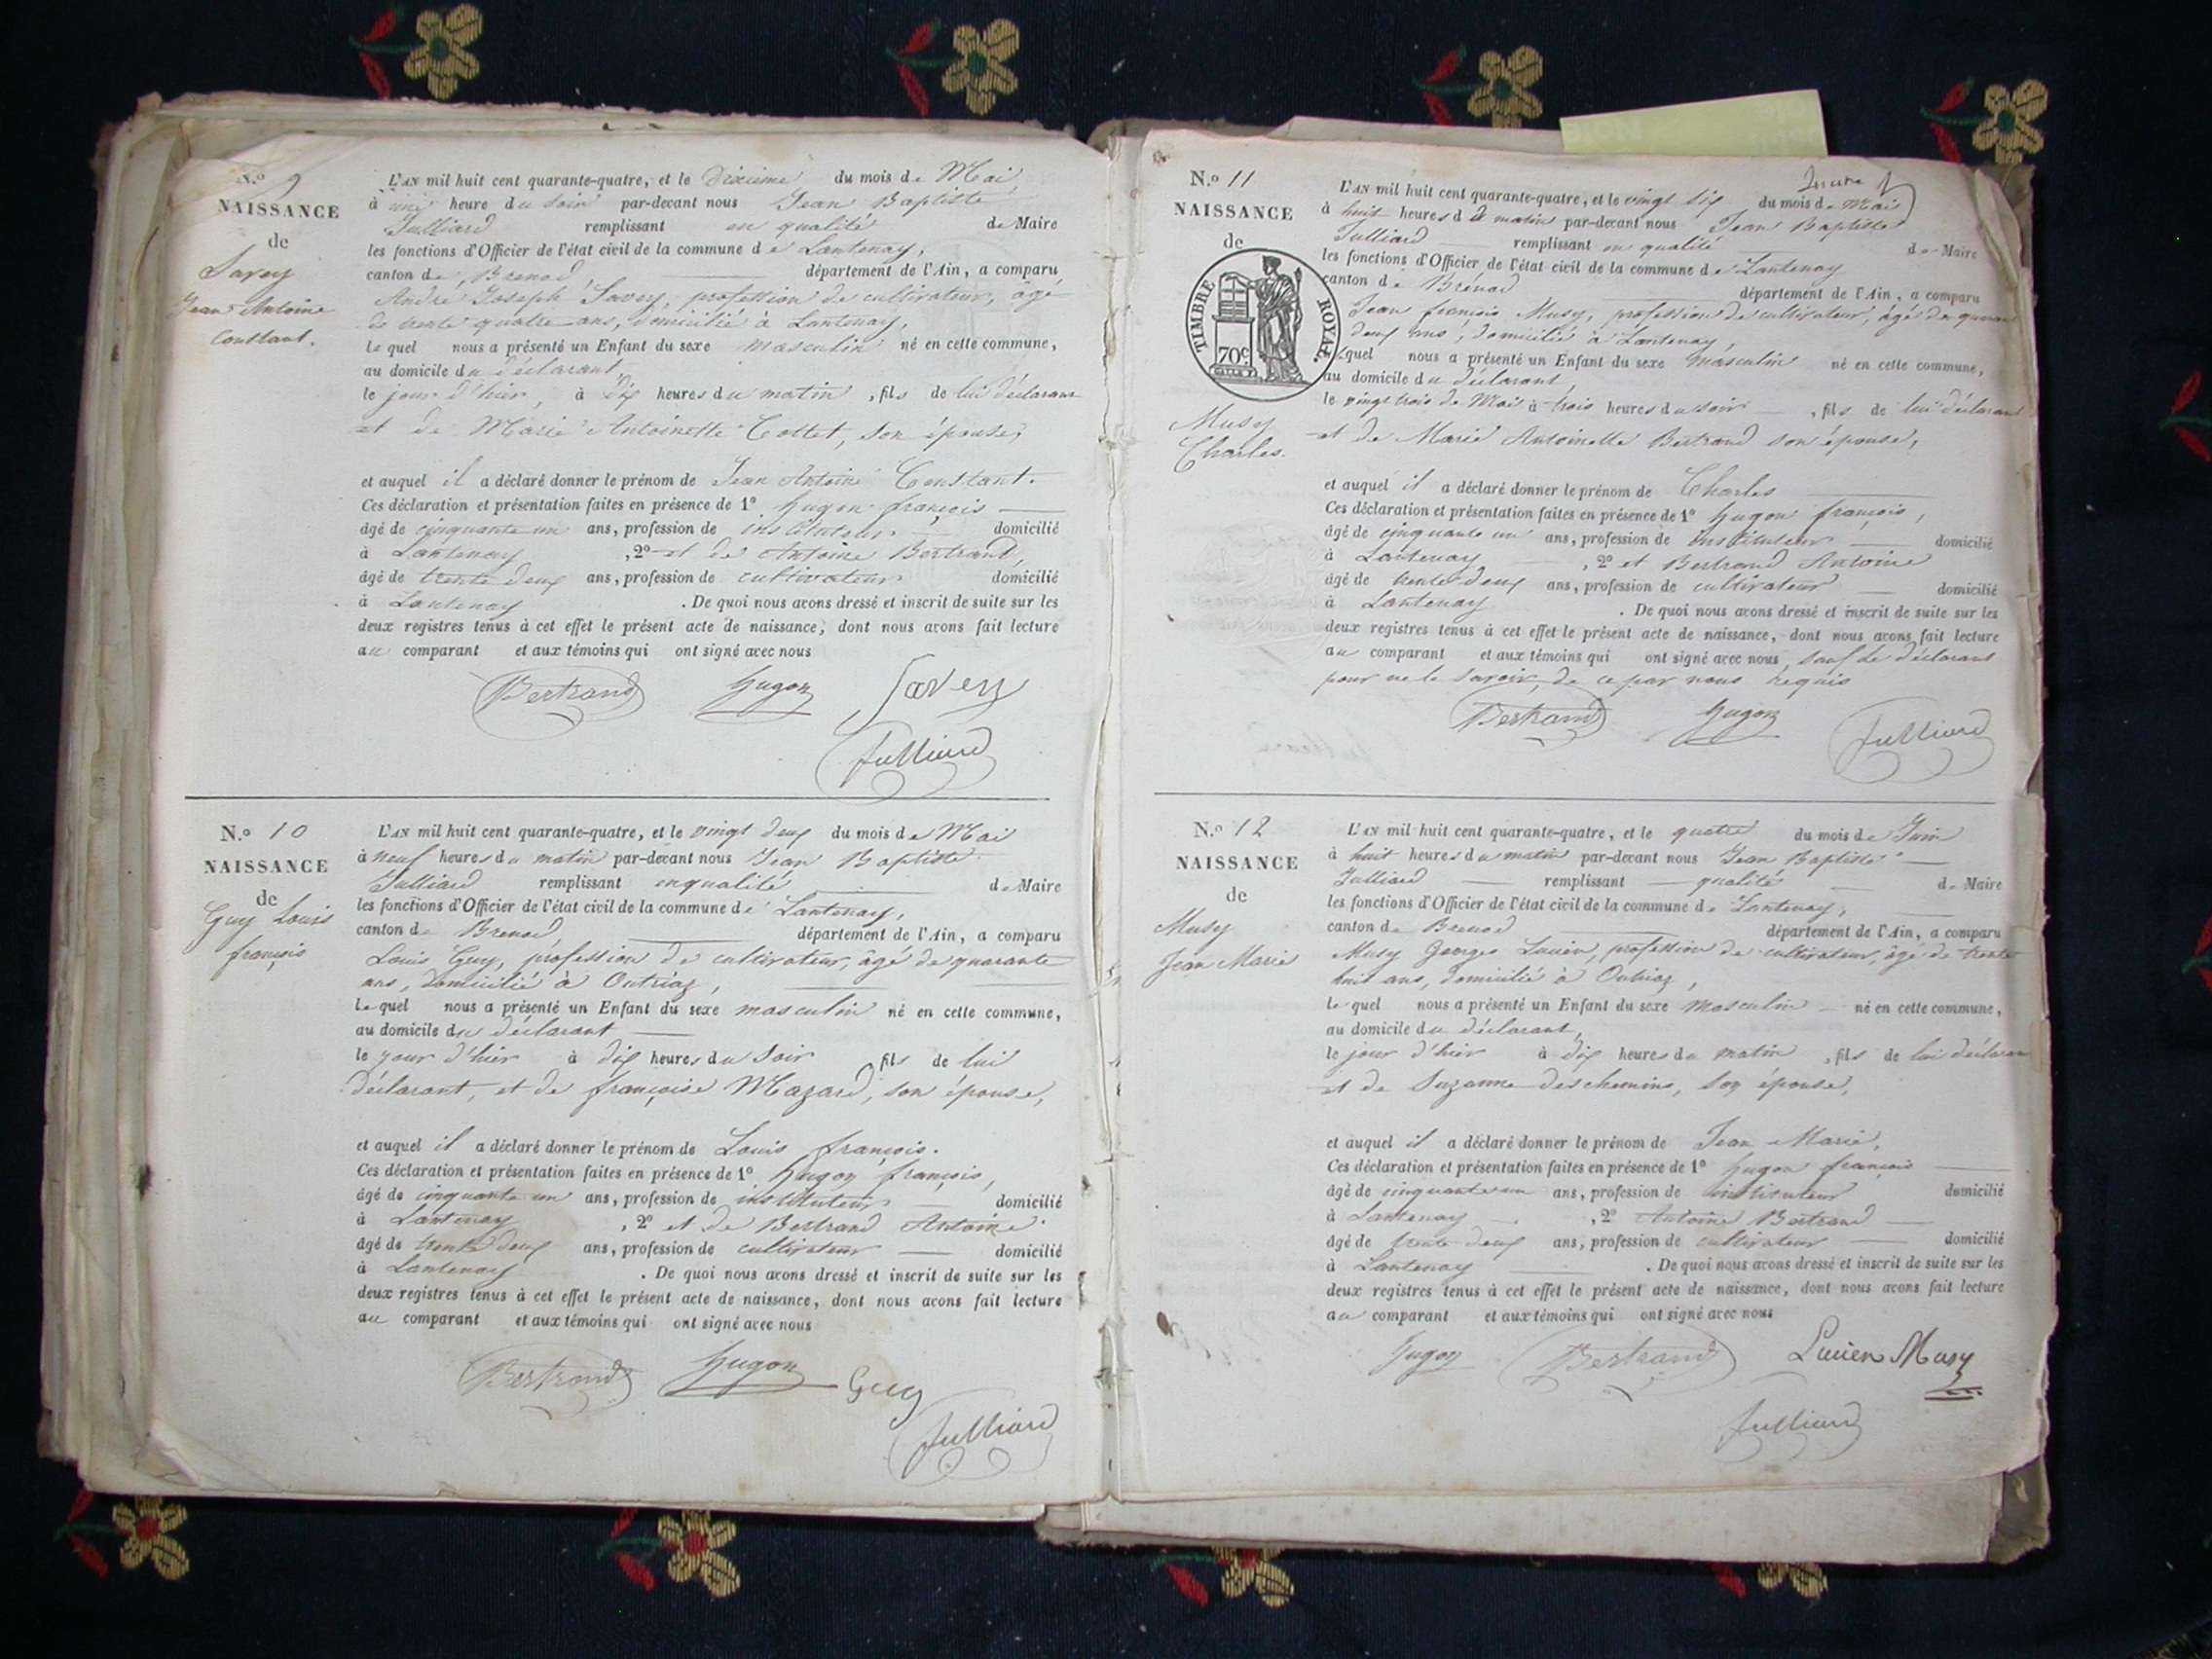 N.º 9
NAISSANCE
de
Savey
Jean Antoine
Constant.
L'AN mil huit cent quarante-quatre, et le dixième du mois de Mai
à une heure du soir par-devant nous Jean Baptiste
Julliard remplissant en qualité de Maire
les fonctions d'Officier de l'état civil de la commune de Lantenay,
canton de Brenod, département de l'Ain, a comparu
André Joseph Savey, profession de cultivateur, âgé
de trente quatre ans, domicilié à Lantenay,
Le quel nous a présenté un Enfant du sexe masculin né en cette commune,
au domicile du déclarant,
le jour d'hier, à dix heures du matin, fils de lui déclarant
et de Marie Antoinette Cottet, son épouse,
et auquel il a déclaré donner le prénom de Jean Antoine Constant.
Ces déclaration et présentation faites en présence de 1º Hugon françois
âgé de cinquante un ans, profession de instituteur domicilié
à Lantenay, 2º et de Antoine Bertrand,
âgé de trente deux ans, profession de cultivateur domicilié
à Lantenay. De quoi nous avons dressé et inscrit de suite sur les
deux registres tenus à cet effet le présent acte de naissance, dont nous avons fait lecture
au comparant et aux témoins qui ont signé avec nous
Bertrand Hugon Savey
Julliard
N.º 10
NAISSANCE
de
Guy Louis
françois
L'AN mil huit cent quarante-quatre, et le vingt deux du mois de Mai
à neuf heures du matin par-devant nous Jean Baptiste
Julliard remplissant en qualité de Maire
les fonctions d'Officier de l'état civil de la commune de Lantenay,
canton de Brenod département de l'Ain, a comparu
Louis Guy, profession de cultivateur, âgé de quarante
ans, domicilié à Outriaz,
Le quel nous a présenté un Enfant du sexe masculin né en cette commune,
au domicile du déclarant
le jour d'hier à dix heures du soir, fils de lui
déclarant, et de françoise Mazard, son épouse,
et auquel il a déclaré donner le prénom de Louis françois.
Ces déclaration et présentation faites en présence de 1º Hugon françois,
âgé de cinquante un ans, profession de instituteur domicilié
à Lantenay, 2º et de Bertrand Antoine
âgé de trente deux ans, profession de cultivateur domicilié
à Lantenay. De quoi nous avons dressé et inscrit de suite sur les
deux registres tenus à cet effet le présent acte de naissance, dont nous avons fait lecture
au comparant et aux témoins qui ont signé avec nous
Bertrand Hugon Guy
Julliard
N.º 11
NAISSANCE
de
TIMBRE ROYAL.
70c
Musy
Charles.
L'AN mil huit cent quarante-quatre, et le vingt six du mois de Mai
à huit heures du matin par-devant nous Jean Baptiste
Julliard remplissant en qualité de Maire
les fonctions d'Officier de l'état civil de la commune de Lantenay
canton de Brénod département de l'Ain, a comparu
Jean françois Musy, profession de cultivateur, âgé de quarante
deux ans, domicilié à Lantenay,
Lequel nous a présenté un Enfant du sexe masculin né en cette commune,
au domicile du déclarant,
le vingt trois de Mai à trois heures du soir, fils de lui déclarant
et de Marie Antoinette Bertrand son épouse,
et auquel il a déclaré donner le prénom de Charles
Ces déclaration et présentation faites en présence de 1º Hugon françois,
âgé de cinquante un ans, profession de instituteur domicilié
à Lantenay, 2º et Bertrand Antoine
âgé de trente deux ans, profession de cultivateur domicilié
à Lantenay. De quoi nous avons dressé et inscrit de suite sur les
deux registres tenus à cet effet le présent acte de naissance, dont nous avons fait lecture
au comparant et aux témoins qui ont signé avec nous, sauf le déclarant
pour ne le savoir, de ce par nous requis
Bertrand Hugon
Julliard
N.º 12
NAISSANCE
de
Musy
Jean Marie
L'AN mil huit cent quarante-quatre, et le quatre du mois de Juin
à huit heures du matin par-devant nous Jean Baptiste
Julliard remplissant qualité de Maire
les fonctions d'Officier de l'état civil de la commune de Lantenay,
canton de Brenod département de l'Ain, a comparu
Musy Georges Lucien, profession de cultivateur, âgé de trente
huit ans, domicilié à Outriaz,
Le quel nous a présenté un Enfant du sexe masculin né en cette commune,
au domicile du déclarant,
le jour d'hier à dix heures du matin, fils de lui déclarant
et de Suzanne Deschemins, son épouse,
et auquel il a déclaré donner le prénom de Jean Marie,
Ces déclaration et présentation faites en présence de 1º Hugon françois
âgé de cinquante un ans, profession de instituteur domicilié
à Lantenay, 2º Antoine Bertrand
âgé de trente deux ans, profession de cultivateur domicilié
à Lantenay. De quoi nous avons dressé et inscrit de suite sur les
deux registres tenus à cet effet le présent acte de naissance, dont nous avons fait lecture
au comparant et aux témoins qui ont signé avec nous
Hugon Bertrand Lucien Musy
Julliard